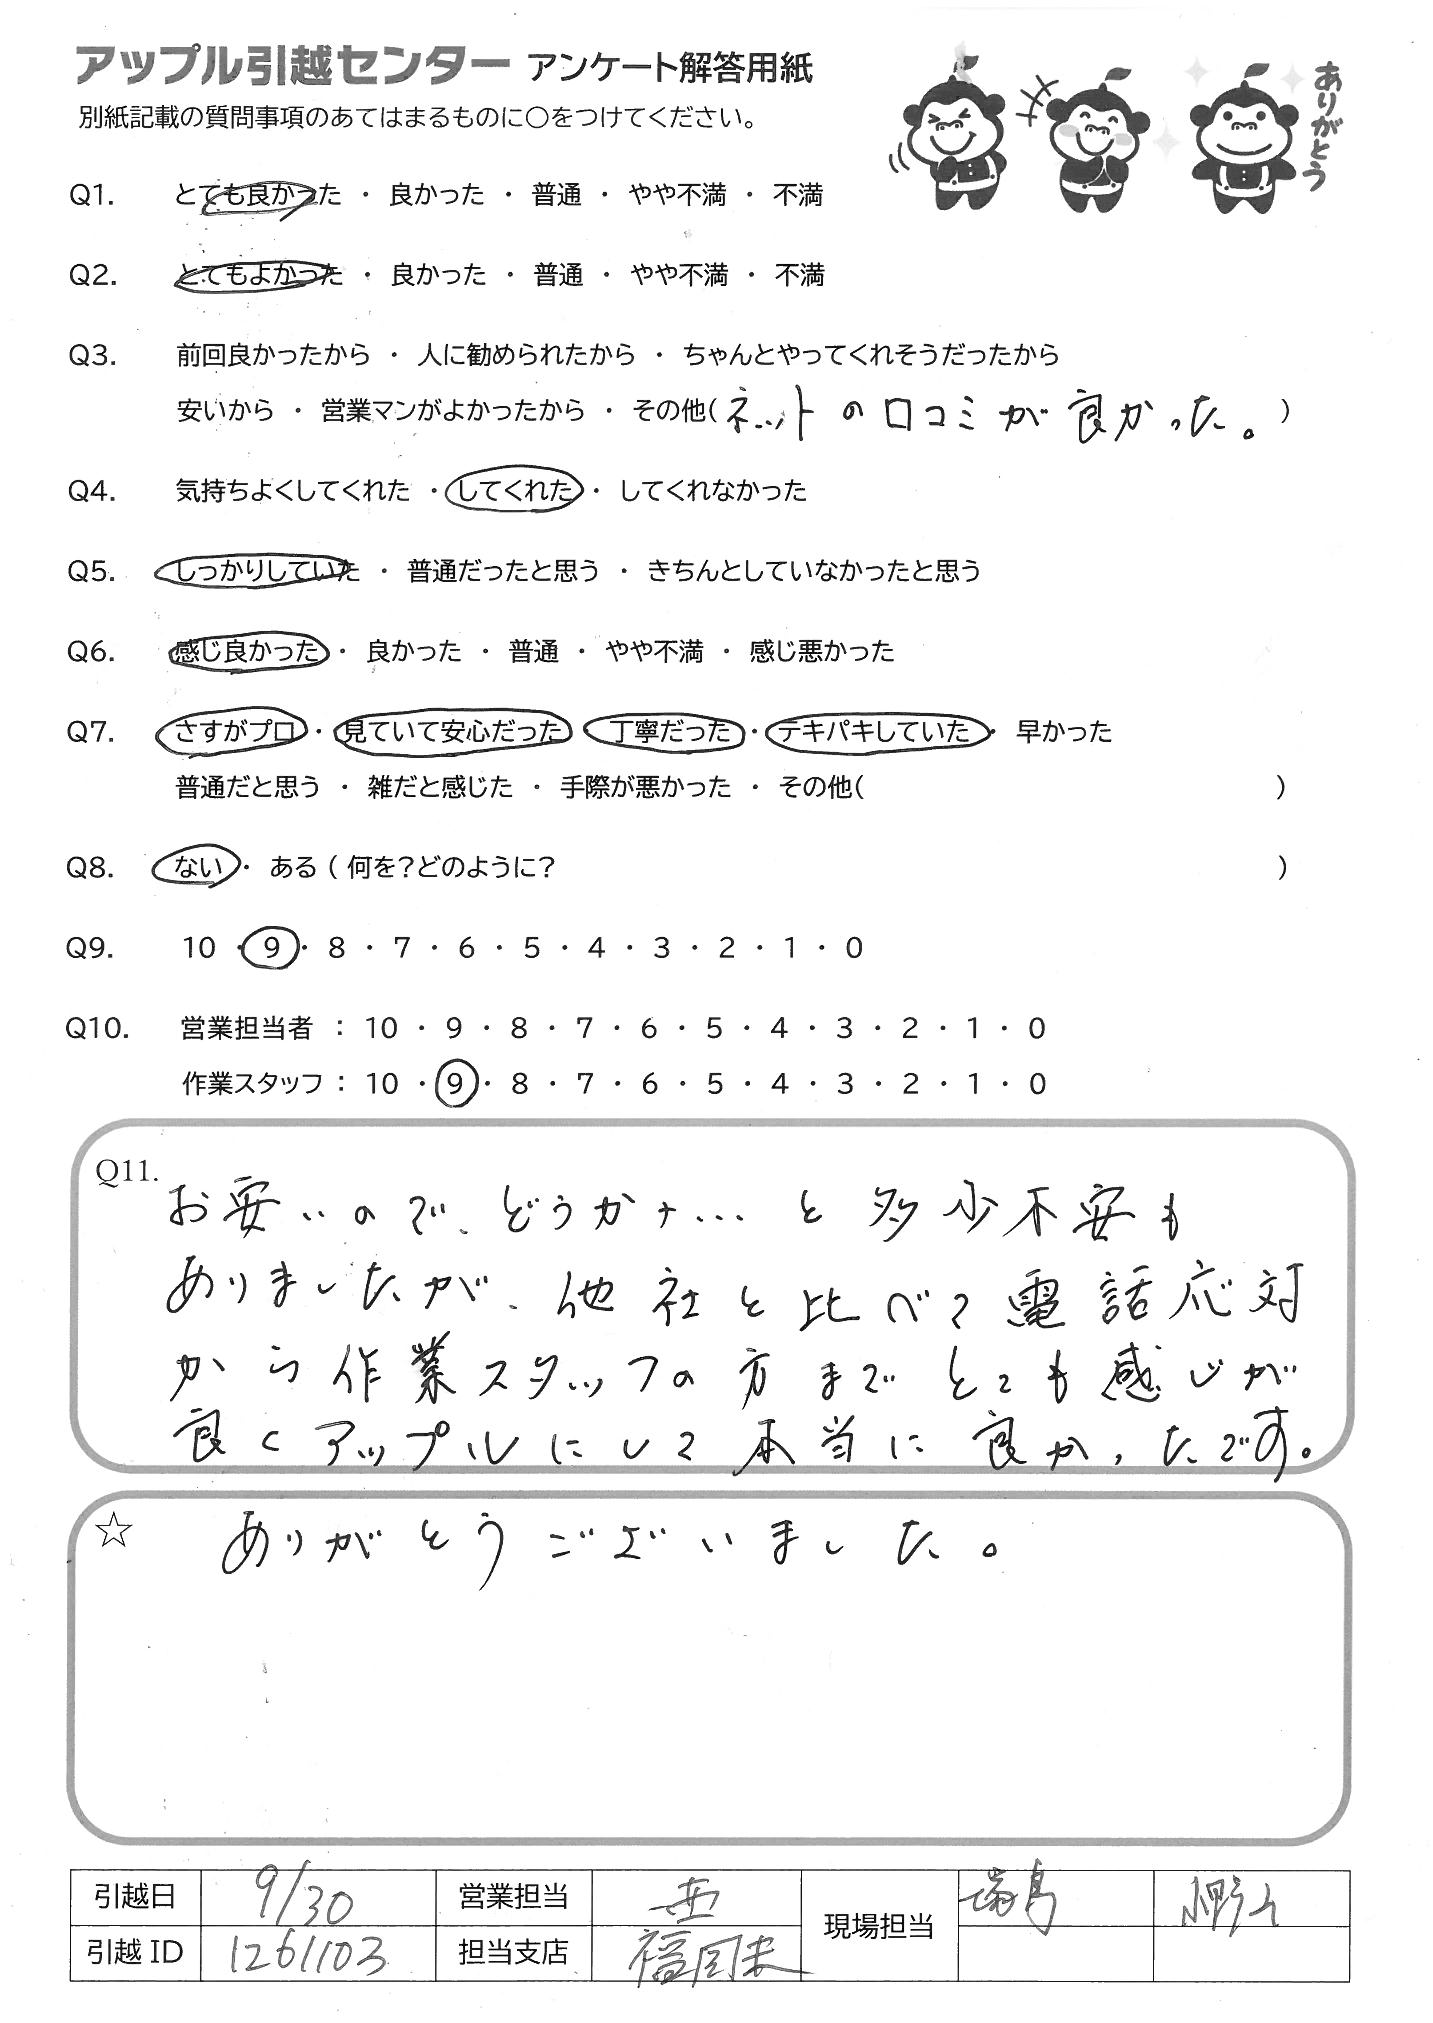 アップル引越センター アンケート解答用紙
ありがとう
別紙記載の質問事項のあてはまるものに〇をつけてください。
Q1. とても良かった ・ 良かった ・ 普通 ・ やや不満 ・ 不満
Q2. とてもよかった ・ 良かった ・ 普通 ・ やや不満 ・ 不満
Q3. 前回良かったから ・ 人に勧められたから ・ ちゃんとやってくれそうだったから
安いから ・ 営業マンがよかったから ・ その他( ネットの口コミが良かった。 )
Q4. 気持ちよくしてくれた ・ してくれた ・ してくれなかった
Q5. しっかりしていた ・ 普通だったと思う ・ きちんとしていなかったと思う
Q6. 感じ良かった ・ 良かった ・ 普通 ・ やや不満 ・ 感じ悪かった
Q7. さすがプロ ・ 見ていて安心だった 丁寧だった ・ テキパキしていた ・ 早かった
普通だと思う ・ 雑だと感じた ・ 手際が悪かった ・ その他( )
Q8. ない ・ ある ( 何を?どのように? )
Q9. 10 ・ 9 ・ 8 ・ 7 ・ 6 ・ 5 ・ 4 ・ 3 ・ 2 ・ 1 ・ 0
Q10. 営業担当者 : 10 ・ 9 ・ 8 ・ 7 ・ 6 ・ 5 ・ 4 ・ 3 ・ 2 ・ 1 ・ 0
作業スタッフ : 10 ・ 9 ・ 8 ・ 7 ・ 6 ・ 5 ・ 4 ・ 3 ・ 2 ・ 1 ・ 0
Q11. お安いので、どうかナ…と多少不安も
ありましたが、他社と比べて電話応対
から作業スタッフの方までとても感じが
良くアップルにして本当に良かったです。
☆ ありがとうございました。
引越日 9/30 営業担当 現場担当
引越 ID 1261103 担当支店